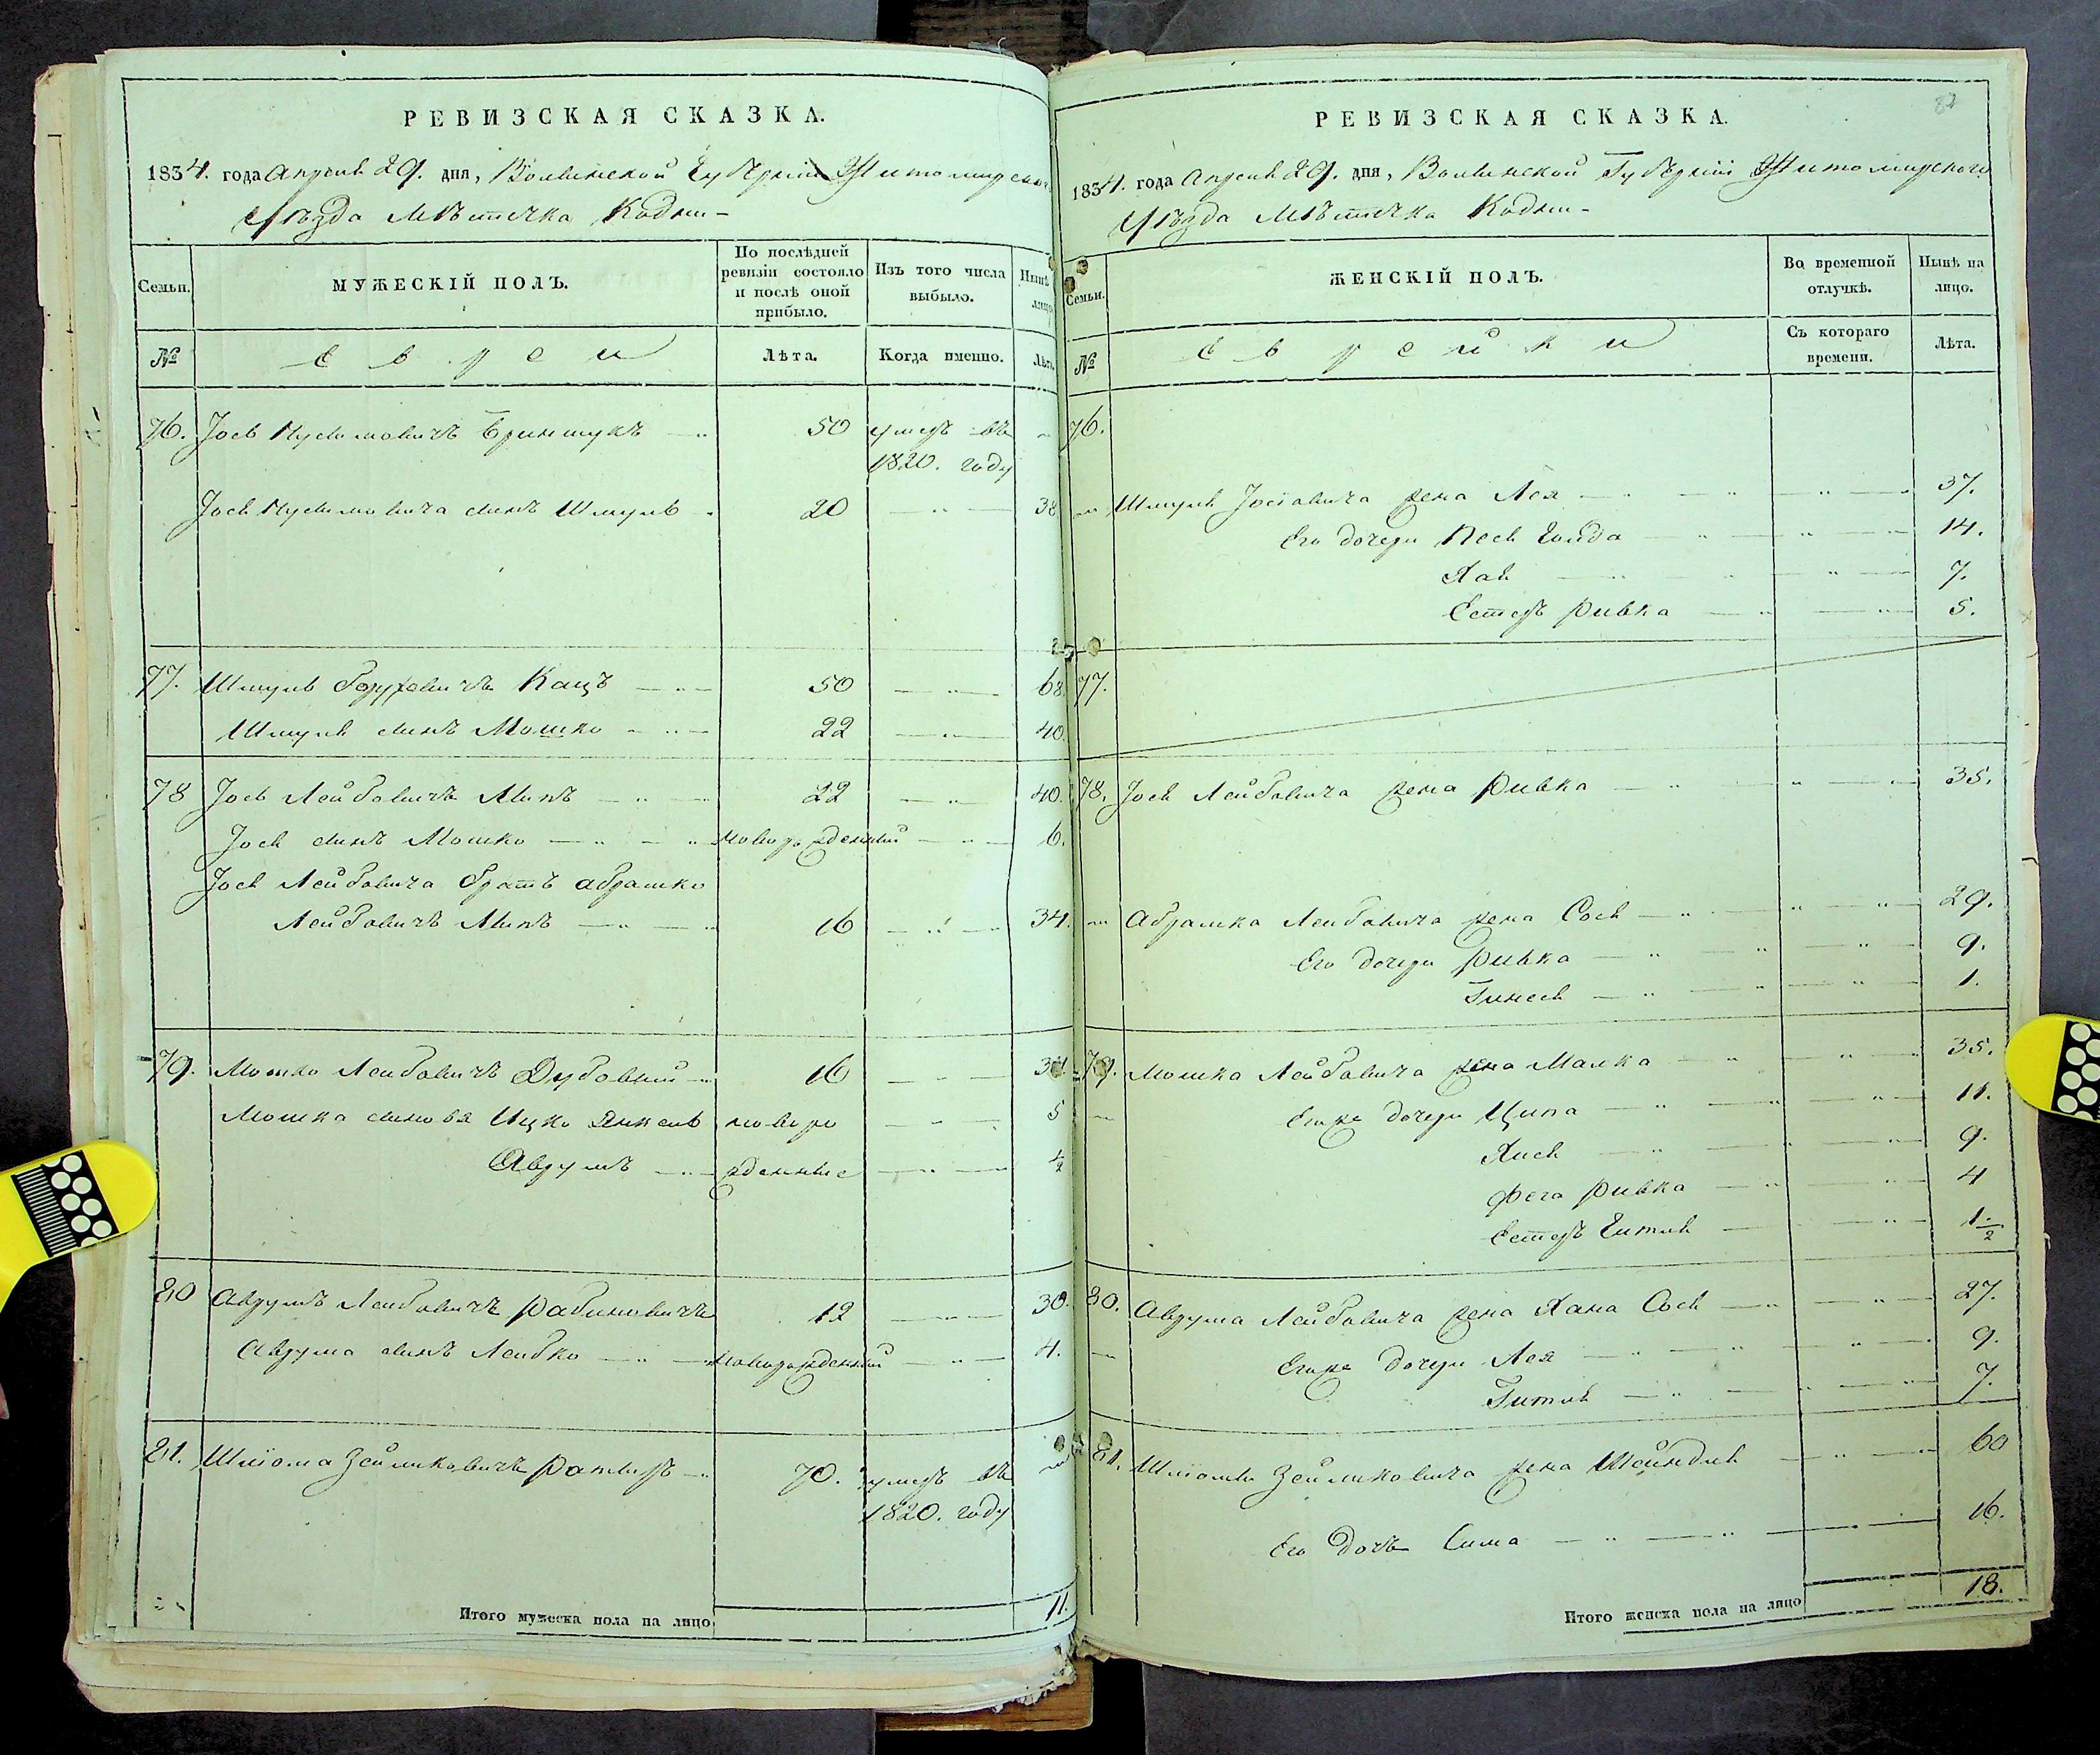 РЕВИЗСКАЯ СКАЗКА.
1834. года Апреля 29. дня, Волынской Губернiи Житомирского
Уѣзда Мѣстечка Кодни-
Семьи.
МУЖЕСКІЙ ПОЛЪ.
По послѣдней ревизіи состояло и послѣ оной прибыло.
Изъ того числа выбыло.
Нынѣ
лицо
№
Евреи
Лѣта.
Когда именно.
Лѣта.
76. Іось Бриншукъ 50 умеръ въ
1820. году
Іося сынъ Шмуль 20 38
77. Шмуль Боруховичъ Кацъ 50 68.
Шмуля сынъ Мошко 22 40.
78 Іось Лейбовичъ 22 40.
Іося сынъ Мошко новорожденный 6.
Іося Лейбовича братъ Абрамко
Лейбовичъ 16 34.
79. Мошко Лейбовичъ Дубовый 16 34.
Мошка сыновя Ицко Янкель новоро 5
Аврумъ жденные 1/2
80 Аврумъ Лейбовичъ Рабиновичъ 12 30.
Аврума сынъ Лейбко новорожденный 4.
81. Шлiома Зейликовичъ 70. умеръ въ
1820. году
Итого мужеска пола на лицо 11.
РЕВИЗСКАЯ СКАЗКА.
1834. года Апреля 29. дня, Волынской Губернiи Житомирского
Уѣзда Мѣстечка Кодни-
Семьи.
ЖЕНСКІЙ ПОЛЪ.
Во временной отлучкѣ.
Нынѣ на лицо.
№
Еврейки
Съ котораго времени.
Лѣта.
76.
Шмуля Іосiовича жена Лея 37.
Его дочери Песя Голда 14.
Хая 7.
Естеръ Ривка 5.
77.
78. Іося Лейбовича жена Ривка 35.
Абрамка Лейбовича жена Сося 29.
Его дочери Ривка 9.
Гинеся 1.
79. Мошка Лейбовича жена Малка 35.
Егоже дочери Ципа 11.
Хися 9.
Фега Ривка 4
Естеръ Гитля 1/2
80. Аврума Лейбовича жена Хана Сося 27.
Егоже дочери Лея 9.
Гитля 7.
81. Шлiомы Зейликовича жена Шейндля 60
Его дочь Сима 16.
Итого женска пола на лицо 18.